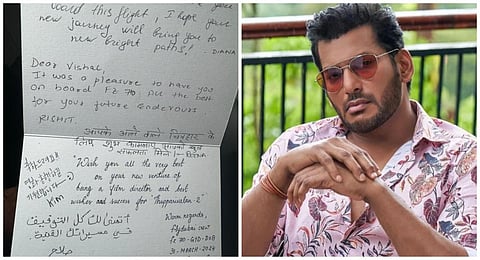 board this flight, I hope your
new journey will bring you to
new bright paths!
- DIANA
Dear Vishal,
It was a pleasure to have you
on board FZ 70. All the best
for your future endevours.
RISHIT.
आपके आने वाले फिल्म के
लिए शुभ कामनाएं आपको खूब
सफलता मिले
"Wish you all the very best
on your new venture of
being a film director and best
wishes and success for Thupparivalan-2"
KIM
Warm regards,
flydubai crew
FZ 70 - GYD - DXB
31-MARCH-2024
أتمنى لك كل التوفيق
في مسيراتك الفنية
صلاح